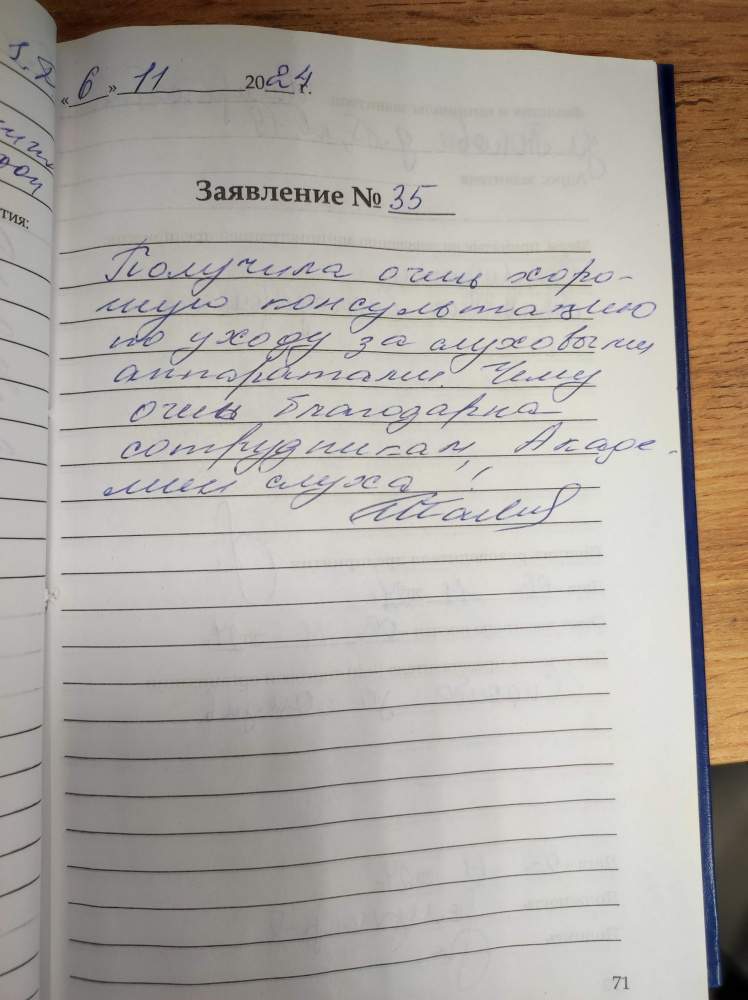 «6» 11 2024 г.
Заявление № 35
Получила очень хоро-
шую консультацию
по уходу за слуховыми
аппаратами. Чему
очень благодарна
сотрудникам Акаде-
мии слуха!
тия:
71